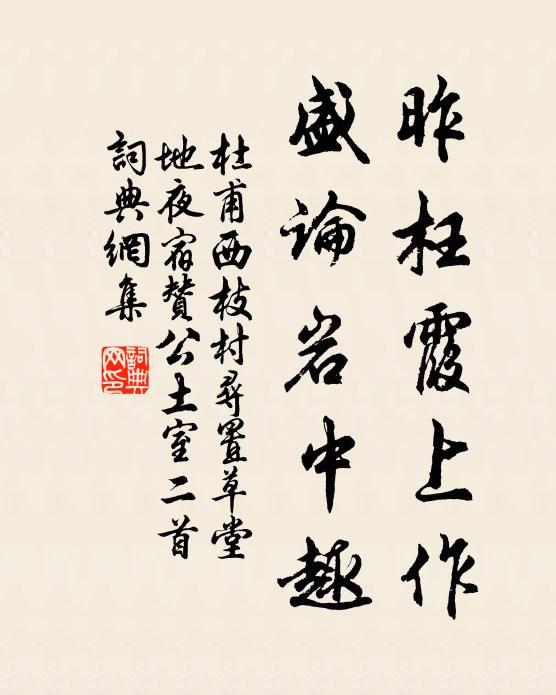 昨枉霞上作
盛論岩中趣
杜甫西枝村尋置草堂
地夜宿贊公土室二首
詞典網集
詞典
网印